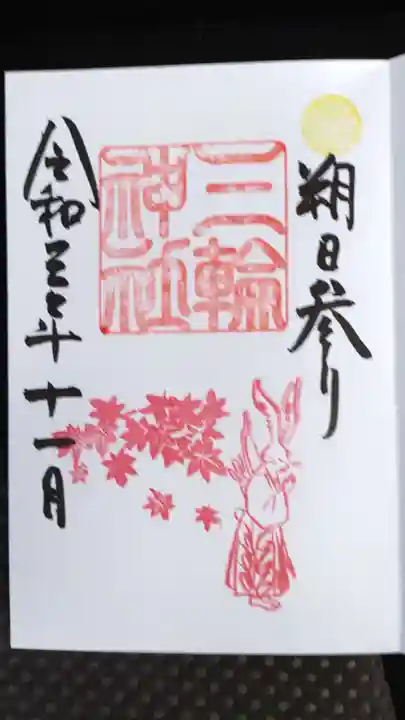 朔日参り
三輪
神社
令和 年十一月